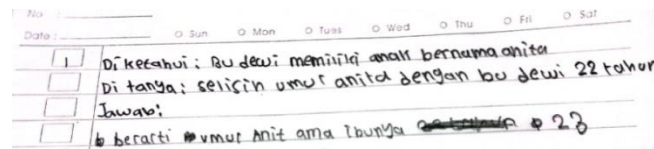 No :
Date : Sun Mon Tues Wed Thu Fri Sat
1 Diketahui : Bu dewi memiliki anak bernama anita
Di tanya : selisin umur anita dengan bu dewi 22 tahun
Jawab :
berarti umur Anit ama Ibunya 23